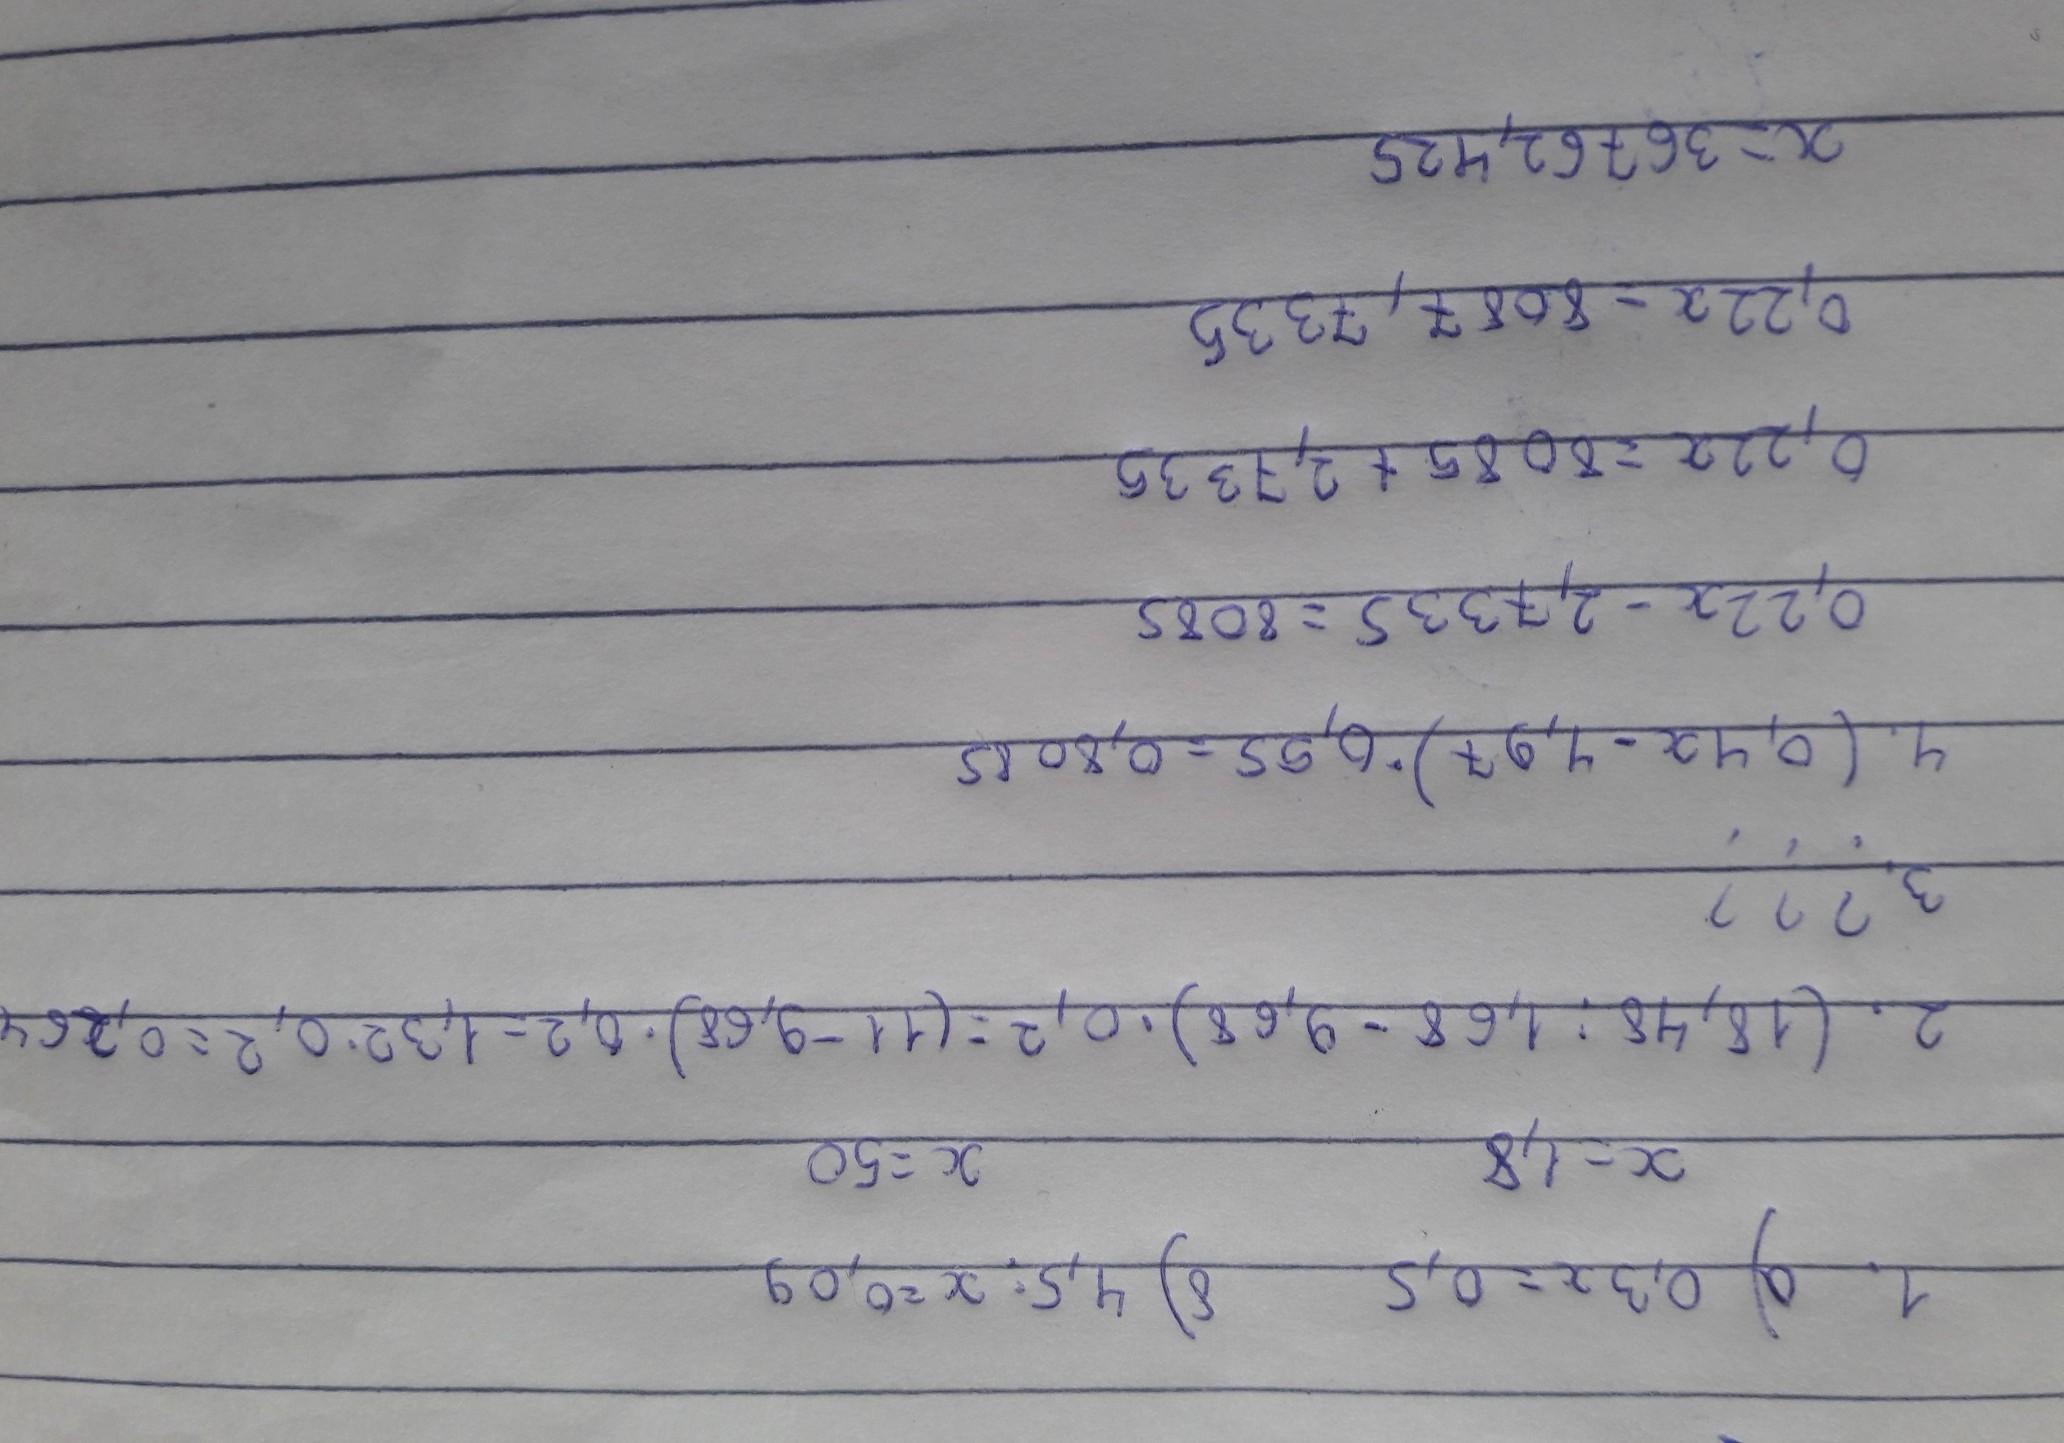 1. а) 0,3x=0,5 б) 4,5:x=0,09
x=1,8 x=50
2. (18,48:1,68-9,68)·0,2=(11-9,68)·0,2=1,32·0,2=0,264
3. ???
4. (0,4x-4,97)·0,55=0,8085
0,22x-2,7335=8085
0,22x=8085+2,7335
0,22x=8087,7335
x=36762,425